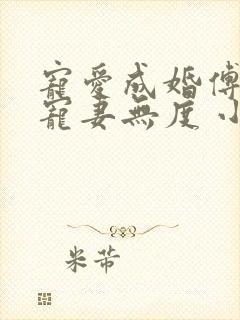 寵愛成婚傅
寵妻無度
米芾